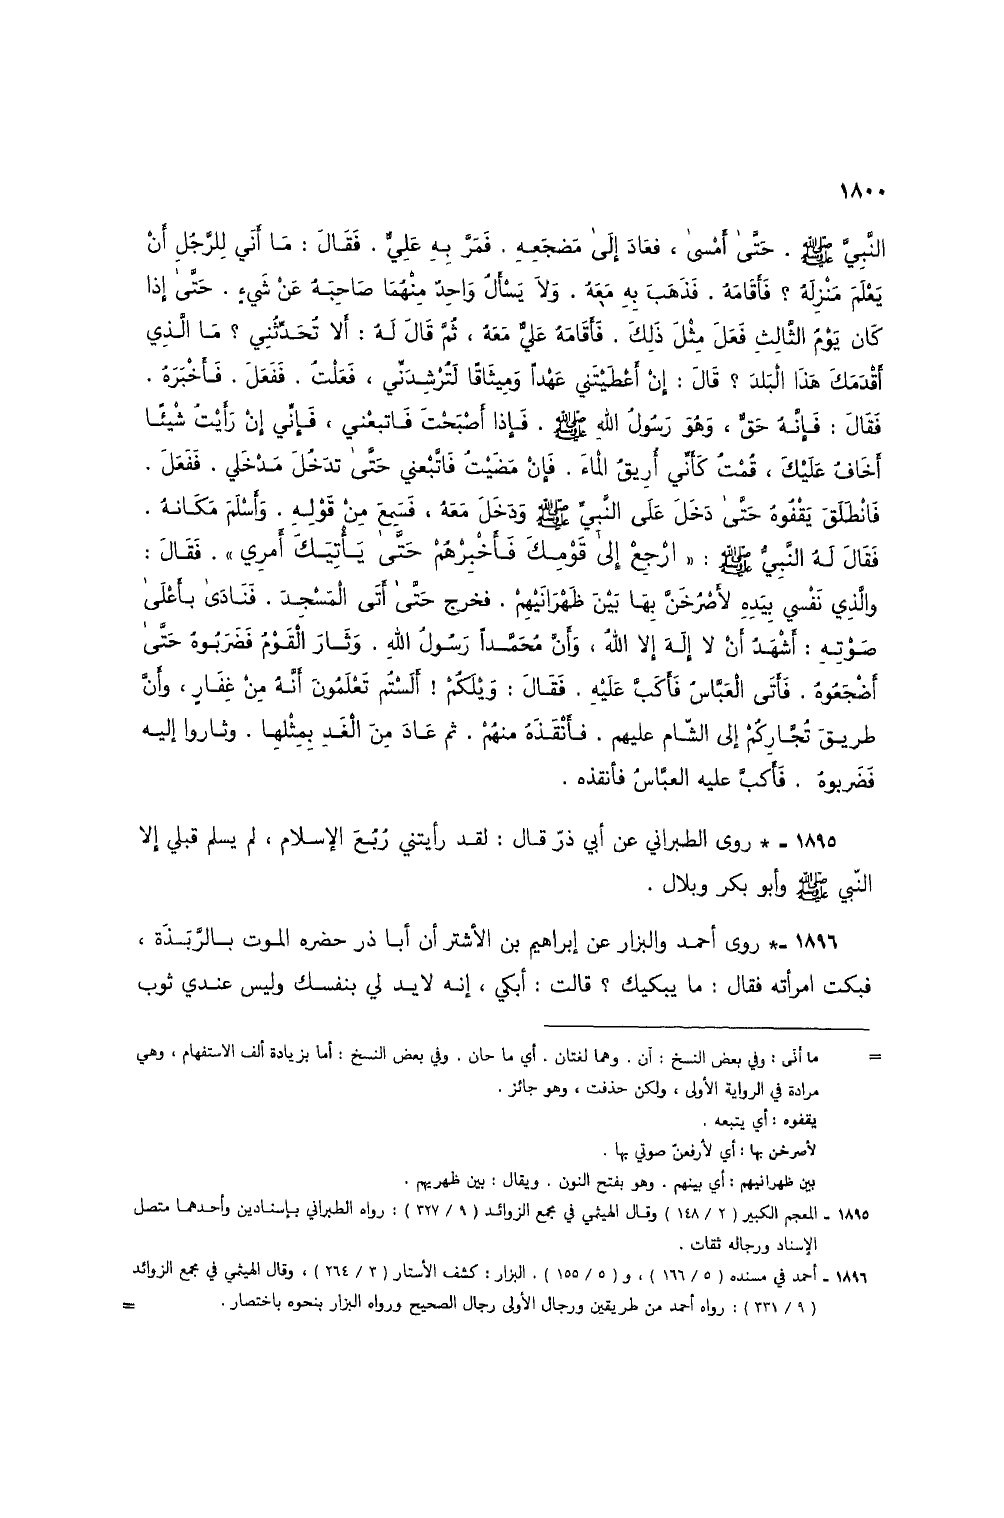 ١٨٠٠
النَّبِيَّ ﷺ . حَتَّىٰ أَمْسىٰ ، فعَادَ إِلَىٰ مَضجَعِهِ . فَمَرَّ بِهِ عَلِيٌّ . فَقَالَ : مَا أَنَي لِلرَّجُلِ أَنْ
يَعْلَمَ مَنْزِلَهُ ؟ فَأَقَامَهُ . فَذَهَبَ بِهِ مَعَهُ . وَلاَ يَسْأَلُ وَاحِدٌ مِنْهُمَا صَاحِبَهُ عَنْ شَيءٍ . حَتَّىٰ إِذا
كَان يَوْمُ الثَّالِثِ فَعَلَ مِثْلَ ذَلِكَ . فَأَقَامَهُ عَلِيٌّ مَعَهُ ، ثُمَّ قَالَ لَهُ : أَلا تُحَدِّثُنِي ؟ مَا الَّذِي
أَقْدَمَكَ هَذَا الْبَلَدَ ؟ قَالَ : إِنْ أَعْطَيْتَنِي عَهْداً وَمِيثَاقًا لَتُرْشِدَنِّي ، فَعَلْتُ . فَفَعَلَ . فَأَخْبَرَهُ .
فَقَالَ : فَإِنَّهُ حَقٌّ ، وَهُوَ رَسُولُ اللهِ ﷺ . فَإِذا أَصْبَحْتَ فَاتبعْني ، فَإِنِّي إِنْ رَأَيْتُ شْيئًا
أَخَافُ عَلَيْكَ ، قُمْتُ كَأَنِّي أُرِيقُ الْمَاءَ . فَإِنْ مَضَيْتُ فَاتَّبْعني حَتَّىٰ تدَخُلَ مَدْخَلي . فَفَعَلَ .
فَانْطَلَقَ يَقْفُوهُ حَتَّىٰ دَخَلَ عَلَى النَّبِيِّ ﷺ وَدَخَلَ مَعَهُ ، فَسَمِعَ مِنْ قَوْلِهِ . وَأَسْلَمَ مَكَانهُ .
فَقَالَ لَهُ النَّبِيُّ ﷺ : « ارْجِعْ إِلىٰ قَوْمِكَ فَأَخْبِرْهُمْ حَتَّىٰ يَأْتِيَكَ أَمرِي » . فَقَالَ :
والَّذِي نَفْسي بِيَدِهِ لأَصْرُخَنَّ بِهَا بَيْنَ ظَهْرَانَيْهِمْ . فخرج حَتَّىٰ أَتَى الْمَسْجِدَ . فَنَادَىٰ بأَعْلَىٰ
صَوْتِهِ : أَشْهَدُ أَنْ لا إِلَهَ إِلا اللهُ ، وَأَنَّ مُحَمَّداً رَسُولُ اللهِ . وَثَارَ الْقَوْمُ فَضَرَبُوهُ حَتَّىٰ
أَضْجَعُوهُ . فَأَتَى الْعَبَّاسُ فَأَكَبَّ عَلَيْهِ . فَقَالَ : وَيْلَكُمْ ! أَلَسْتُم تَعْلَمُونَ أَنَّهُ مِنْ غِفَارٍ ، وأَنَّ
طريقَ تُجَّارِكُمْ إِلى الشّام عليهم . فَأَنْقَذَهُ منهُمْ . ثم عَادَ مِنَ الْغَدِ بِمِثْلِها . وثاروا إليه
فَضَربوهُ . فَأَكبَّ عليه العبَّاسُ فأنقذه .
١٨٩٥ - * روى الطبراني عن أبي ذرّ قال : لقد رأيتني رُبُعَ الإسلام ، لم يسلم قبلي إلا
النّبي ﷺ وأبو بكر وبلال .
١٨٩٦ -* روى أحمد والبزار عن إبراهيم بن الأشتر أن أبا ذر حضره الموت بالرَّبَذَة ،
فبكت امرأته فقال : ما يبكيك ؟ قالت : أبكي ، إنه لابد لي بنفسك وليس عندي ثوب
= ما أنَى : وفي بعض النسخ : آن . وهما لغتان . أي ما حان . وفي بعض النسخ : أما بزيادة ألف الاستفهام ، وهي
مرادة في الرواية الأولى ، ولكن حذفت ، وهو جائز .
يقفوه : أي يتبعه .
لأصرخن بها : أي لأرفعنّ صوتي بها .
بين ظهرانيهم : أي بينهم . وهو بفتح النون . ويقال : بين ظهريهم .
١٨٩٥ - المعجم الكبير ( ٢ / ١٤٨ ) وقال الهيثمي في مجمع الزوائد ( ٩ / ٣٢٧ ) : رواه الطبراني بإسنادين وأحدهما متصل
الإسناد ورجاله ثقات .
١٨٩٦ - أحمد في مسنده ( ٥ / ١٦٦ ) ، و ( ٥ / ١٥٥ ) . البزار : كشف الأستار ( ٣ / ٢٦٤ ) ، وقال الهيثمي في مجمع الزوائد
( ٩ / ٣٣١ ) : رواه أحمد من طريقين ورجال الأولى رجال الصحيح ورواه البزار بنحوه باختصار . =